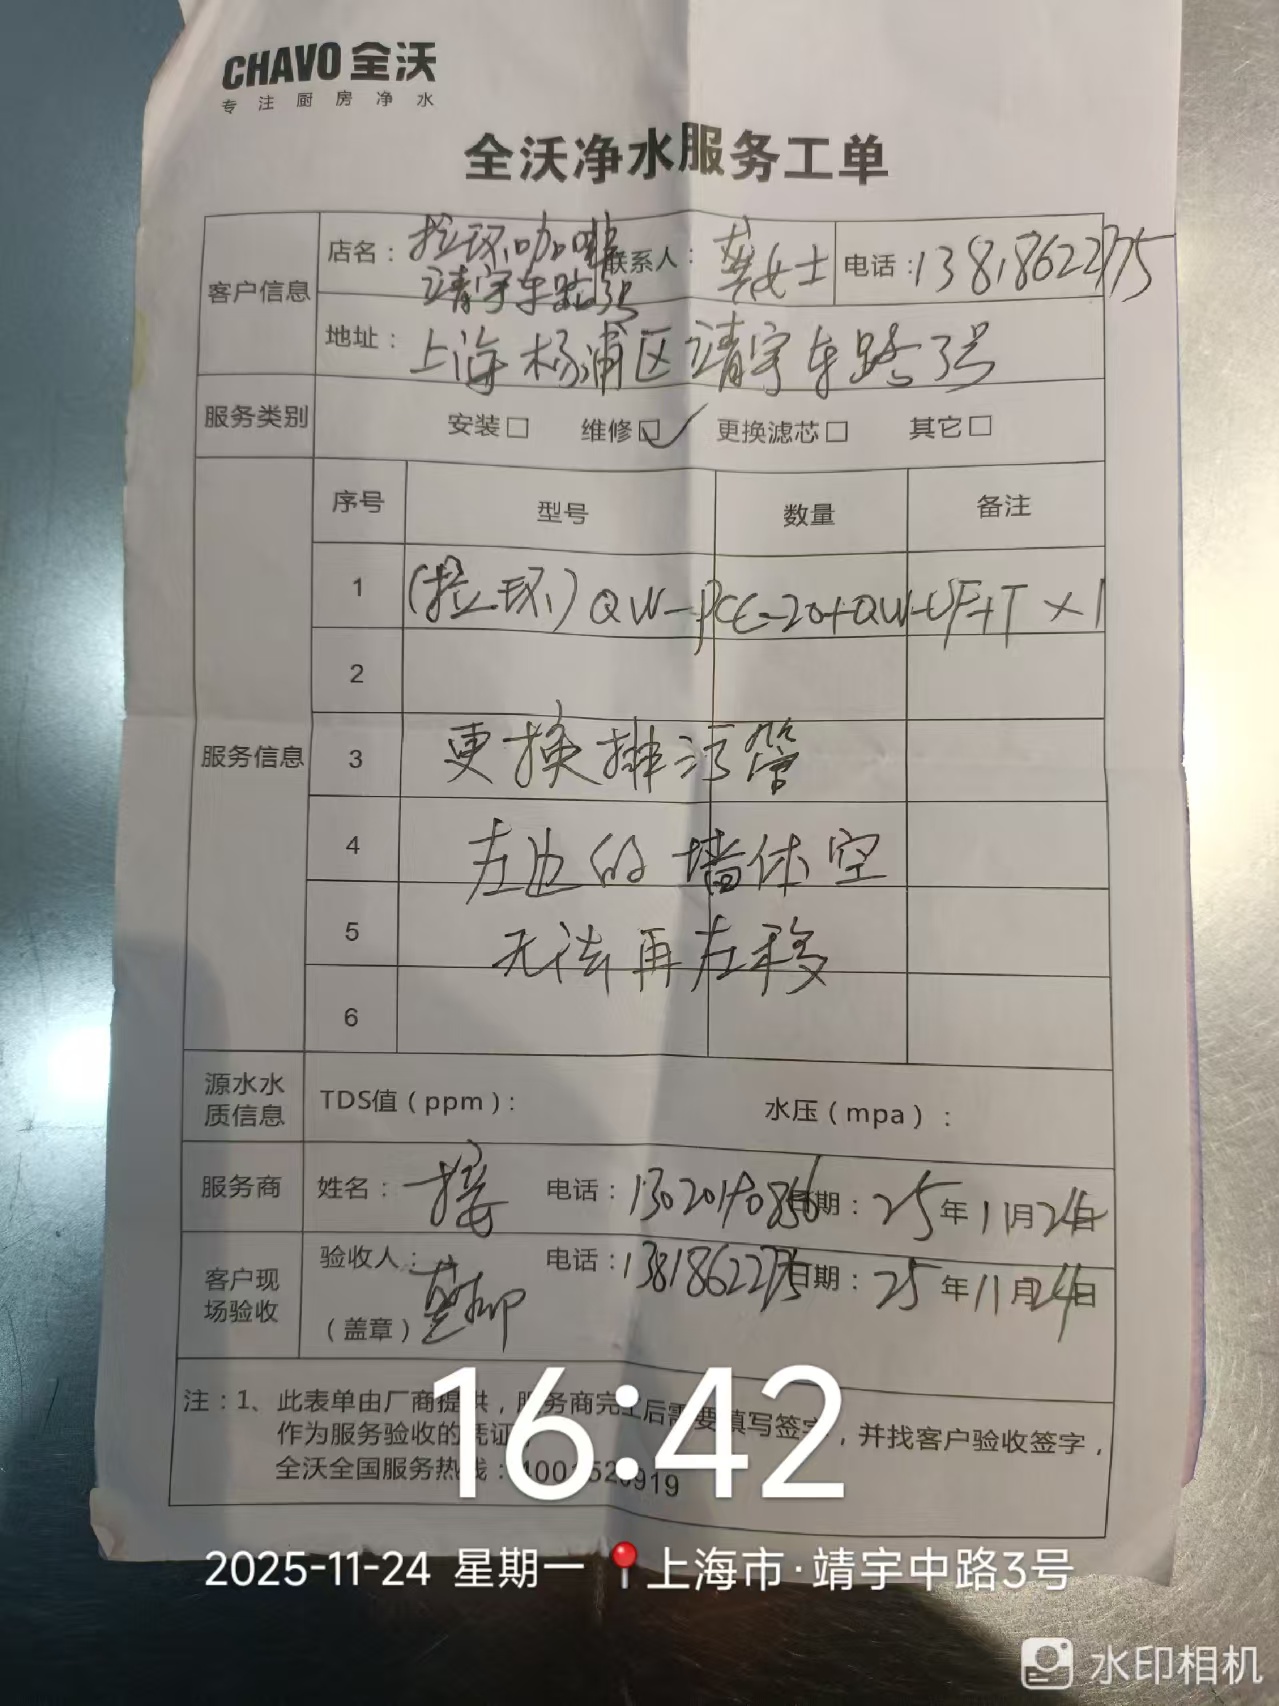 CHAVO 全沃
专注厨房净水
全沃净水服务工单
客户信息 店名：拉环咖啡 联系人：女士 电话：13818622775
靖宇东路3号
地址：上海杨浦区靖宇东路3号
服务类别 安装□ 维修☑ 更换滤芯□ 其它□
序号 型号 数量 备注
1 (拉环) QW-PCC-20+QW-UF+T ×1
2
服务信息 3 更换排污管
4 左边的墙体空
5 无法再左移
6
源水水质信息 TDS值（ppm）： 水压（mpa）：
服务商 姓名： 电话： 日期：25年11月24日
客户现场验收 验收人： 电话： 日期：25年11月24日
（盖章）
注：1、此表单由厂商提供，服务商完工后需要填写签字，并找客户验收签字，
作为服务验收的凭证
全沃全国服务热线：
16:42
2025-11-24 星期一 上海市·靖宇中路3号
水印相机